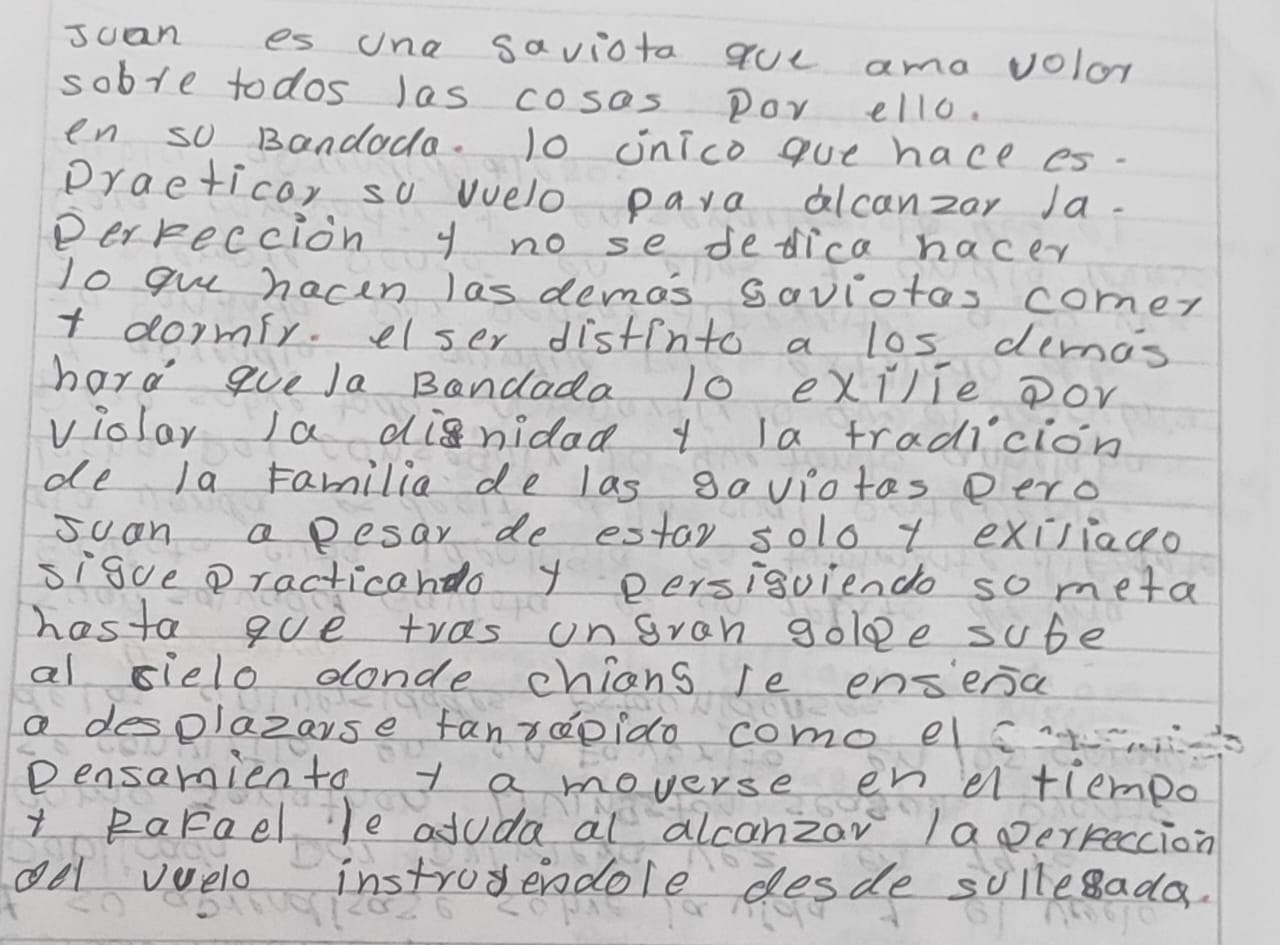 Juan es una gaviota que ama volar
sobre todos las cosas por ello.
en su Bandada. lo único que hace es.
Practicar su vuelo para alcanzar la.
Perfección y no se dedica hacer
lo que hacen las demás gaviotas comer
y dormir. el ser distinto a los demás
hará que la Bandada lo exilie por
violar la dignidad y la tradición
de la familia de las gaviotas pero
Juan a pesar de estar solo y exiliado
sigue practicando y persiguiendo so meta
hasta que tras un gran golpe sube
al cielo donde chiang le enseña
a desplazarse tan rápido como el
Pensamiento y a moverse en el tiempo
y Rafael le ayuda al alcanzar la perfección
del vuelo instruyéndole desde su llegada.